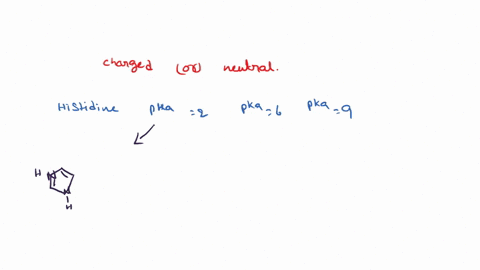 charged (or) neutral.
Histidine pka = 2 pka = 6 pka = 9
H N
N
H